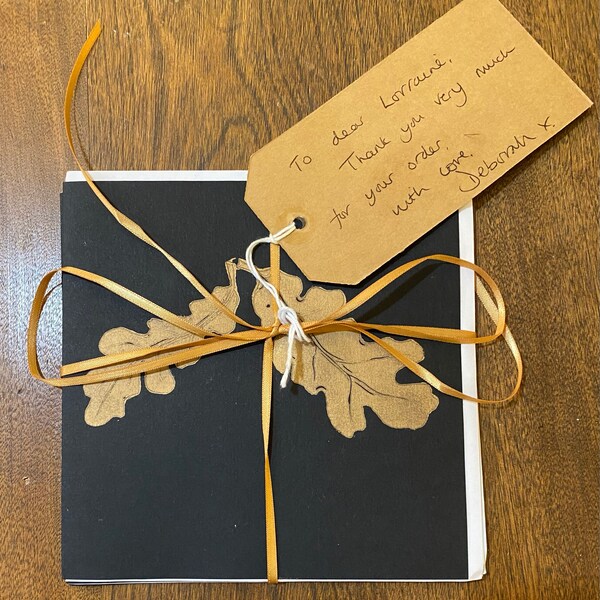 To dear Lorraine,
Thank you very much
for your order.
with love.
Deborah x